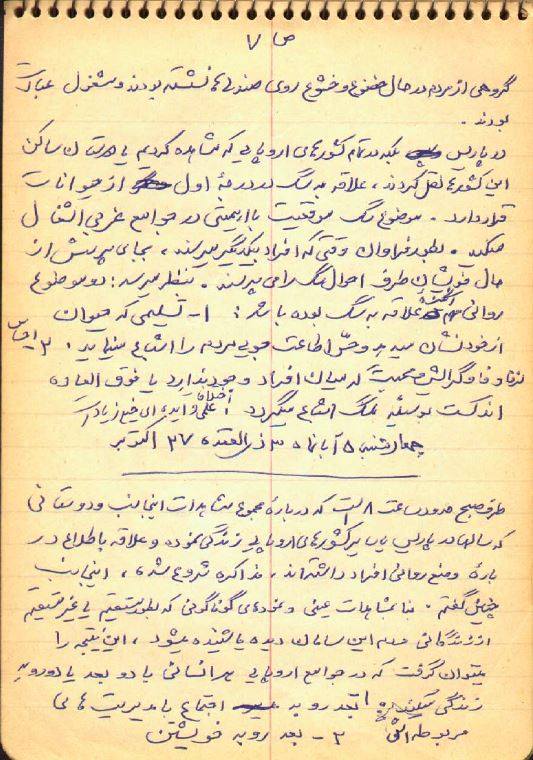 ص ۷
گروهی از مردم در حال خضوع و خشوع روی صندلی‌ها نشسته بودند و مشغول عبادت
بودند .
در پاریس بلکه در تمام کشورهای اروپایی که مشاهده کردیم یا دوستان ساکن
این کشورها نقل کردند ، علاقه به سگ در درجهٔ اول از حیوانات
قرار دارد . موضوع سگ موقعیت با اهمیتی در جوامع غربی اشغال
میکند . بطور فراوان وقتی که افراد بیکدیگر میرسند ، بجای پرسش از
حال خویشان طرف احوال سگ را می پرسند . بنظر میرسد : دو موضوع
روانی علاقه به سگ بوده باشد : ۱- تسلیمی که حیوان
از خود نشان میدهد و حس اطاعت جویی مردم را اشباع مینماید . ۲ احساس
وفا و گرایش صمیمیت که میان افراد وجود ندارد یا فوق العاده
اندکست بوسیله سگ اشباع میگردد
چهارشنبه ۵ آبانماه ۳ ذی القعده ۲۷ اکتبر
طرف صبح حدود ساعت ۸ است که دربارهٔ مجموع مشاهدات اینجانب و دوستانی
که سالها در پاریس یا سایر کشورهای اروپایی زندگی نموده و علاقه باطلاع در
بارهٔ وضع روانی افراد داشته‌اند ، مذاکره شروع شد ، اینجانب
چنین گفتم . بنا بمشاهدات عینی و نمودهای گوناگونی که بطور مستقیم یا غیر مستقیم
از زندگانی مردم این سامان دیده یا شنیده میشود ، این نتیجه را
میتوان گرفت که در جوامع اروپایی هر انسانی با دو بعد یا دو رویه
زندگی میکند ۱ بعد رو به اجتماع با مدیریت هایی
مربوطه اش ۲ - بعد رو به خویشتن